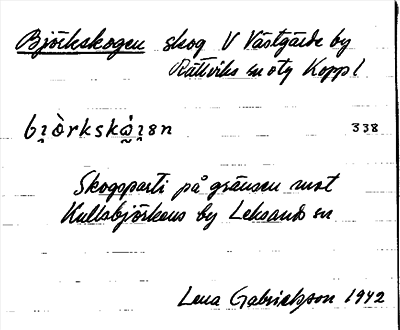 Björkskogen skog V Västgärde by
Rättviks sn o tg Koppl
bi̯òrkskó̰i̯en 338
Skogsparti på gränsen mot
Kullsbjörkens by Leksands sn
Lena Gabrielsson 1942